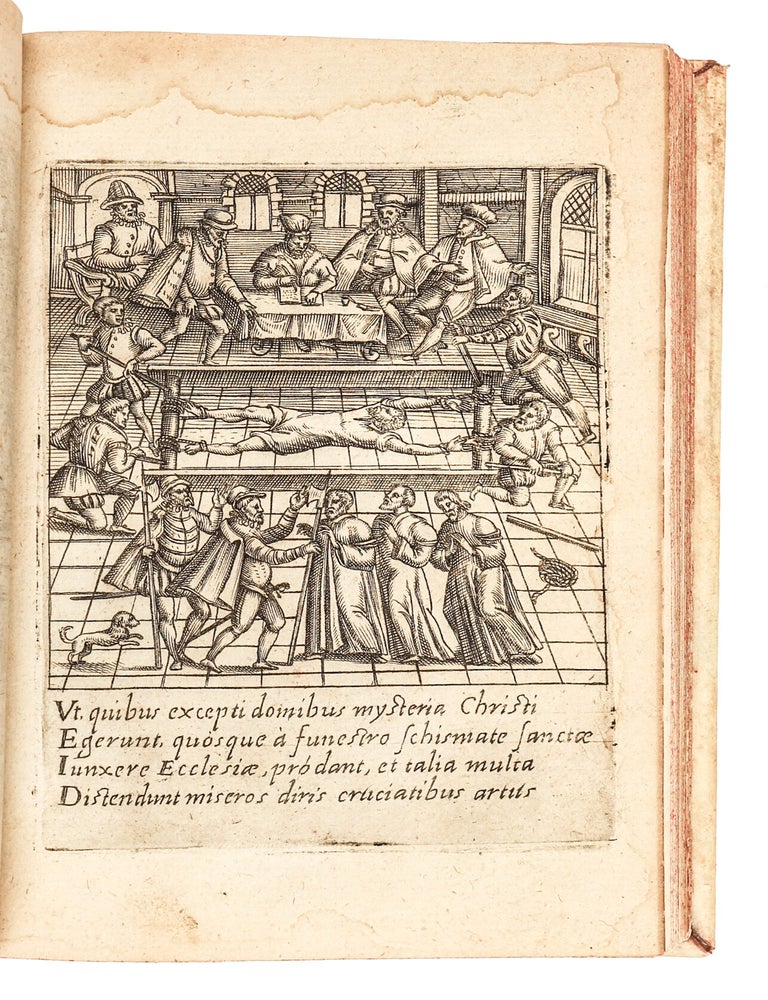 Vt, quibus excepti domibus mysteria Christi
Egerunt, quosque à funestro schismate sanctæ
Iunxere Ecclesiæ, pródant, et talia multa
Distendunt miseros diris cruciatibus artus